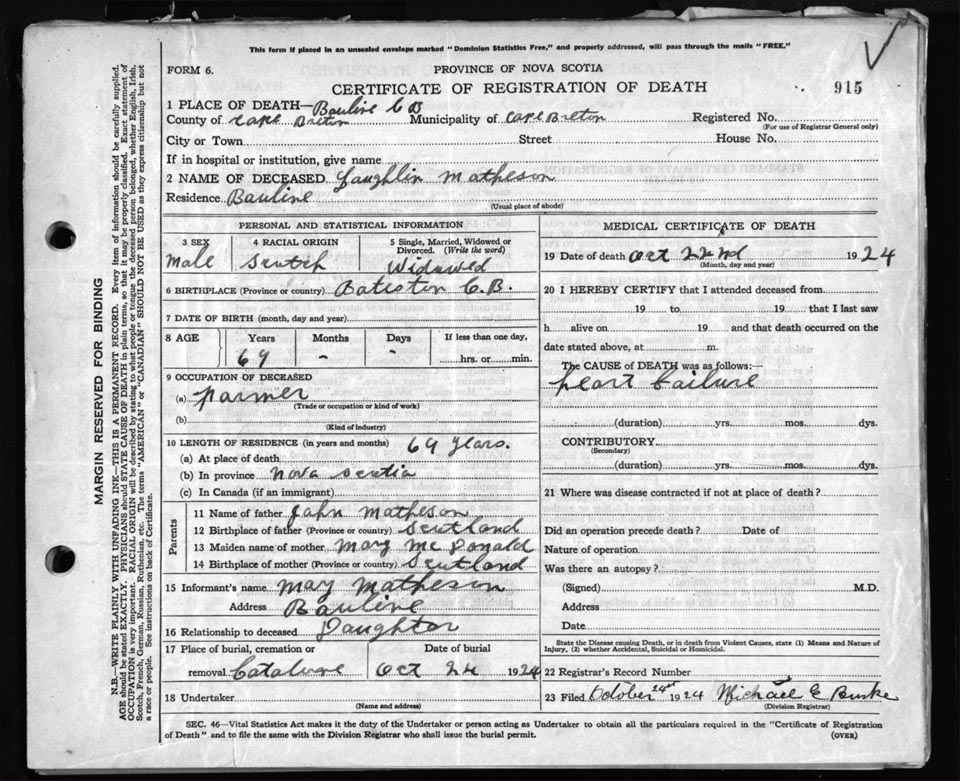 This form if placed in an unsealed envelope marked "Dominion Statistics Free," and properly addressed, will pass through the mails "FREE."
FORM 6.
PROVINCE OF NOVA SCOTIA
CERTIFICATE OF REGISTRATION OF DEATH
915
MARGIN RESERVED FOR BINDING
N.B.—WRITE PLAINLY WITH UNFADING INK—THIS IS A PERMANENT RECORD. Every item of information should be carefully supplied.
AGE should be stated EXACTLY. PHYSICIANS should STATE CAUSE OF DEATH in plain terms, so that it may be properly classified. Exact statement of
OCCUPATION is very important. RACIAL ORIGIN will be described by stating to what people or tongue the deceased person belonged, whether English, Irish,
Scotch, French, German, Russian, Ruthenian, etc. The terms "AMERICAN" or "CANADIAN" SHOULD NOT BE USED as they express citizenship but not
a race or people. See instructions on back of Certificate.
1 PLACE OF DEATH— Bauline C B
County of Cape Breton Municipality of Cape Breton Registered No.
(For use of Registrar General only)
City or Town Street House No.
If in hospital or institution, give name
2 NAME OF DECEASED Laughlin Matheson
Residence Bauline
(Usual place of abode)
PERSONAL AND STATISTICAL INFORMATION
3 SEX 4 RACIAL ORIGIN 5 Single, Married, Widowed or
Divorced. (Write the word)
Male Scutch Widuwed
6 BIRTHPLACE (Province or country) Bateston C.B.
7 DATE OF BIRTH (month, day and year)
8 AGE Years Months Days If less than one day,
69 - - hrs. or min.
9 OCCUPATION OF DECEASED
(a) Farmer
(Trade or occupation or kind of work)
(b)
(Kind of industry)
10 LENGTH OF RESIDENCE (in years and months) 69 years.
(a) At place of death
(b) In province Nova Scotia
(c) In Canada (if an immigrant)
Parents
11 Name of father John Matheson
12 Birthplace of father (Province or country) Scutland
13 Maiden name of mother Mary McDonald
14 Birthplace of mother (Province or country) Scutland
15 Informant's name Mary Matheson
Address Bauline
16 Relationship to deceased Daughter
17 Place of burial, cremation or Date of burial
removal Catalone Oct 24 1924
18 Undertaker
(Name and address)
MEDICAL CERTIFICATE OF DEATH
19 Date of death Oct 22nd 1924
(Month, day and year)
20 I HEREBY CERTIFY that I attended deceased from
19 to 19 that I last saw
h alive on 19 and that death occurred on the
date stated above, at m.
The CAUSE of DEATH was as follows:—
Heart Failure
(duration) yrs. mos. dys.
CONTRIBUTORY
(Secondary)
(duration) yrs. mos. dys.
21 Where was disease contracted if not at place of death?
Did an operation precede death? Date of
Nature of operation
Was there an autopsy?
(Signed) M.D.
Address
Date
State the Disease causing Death, or in death from Violent Causes, state (1) Means and Nature of
Injury, (2) whether Accidental, Suicidal or Homicidal.
22 Registrar's Record Number
23 Filed October 24st 1924 Michael E Burke
(Division Registrar)
SEC. 46—Vital Statistics Act makes it the duty of the Undertaker or person acting as Undertaker to obtain all the particulars required in the "Certificate of Registration
of Death" and to file the same with the Division Registrar who shall issue the burial permit. (OVER)